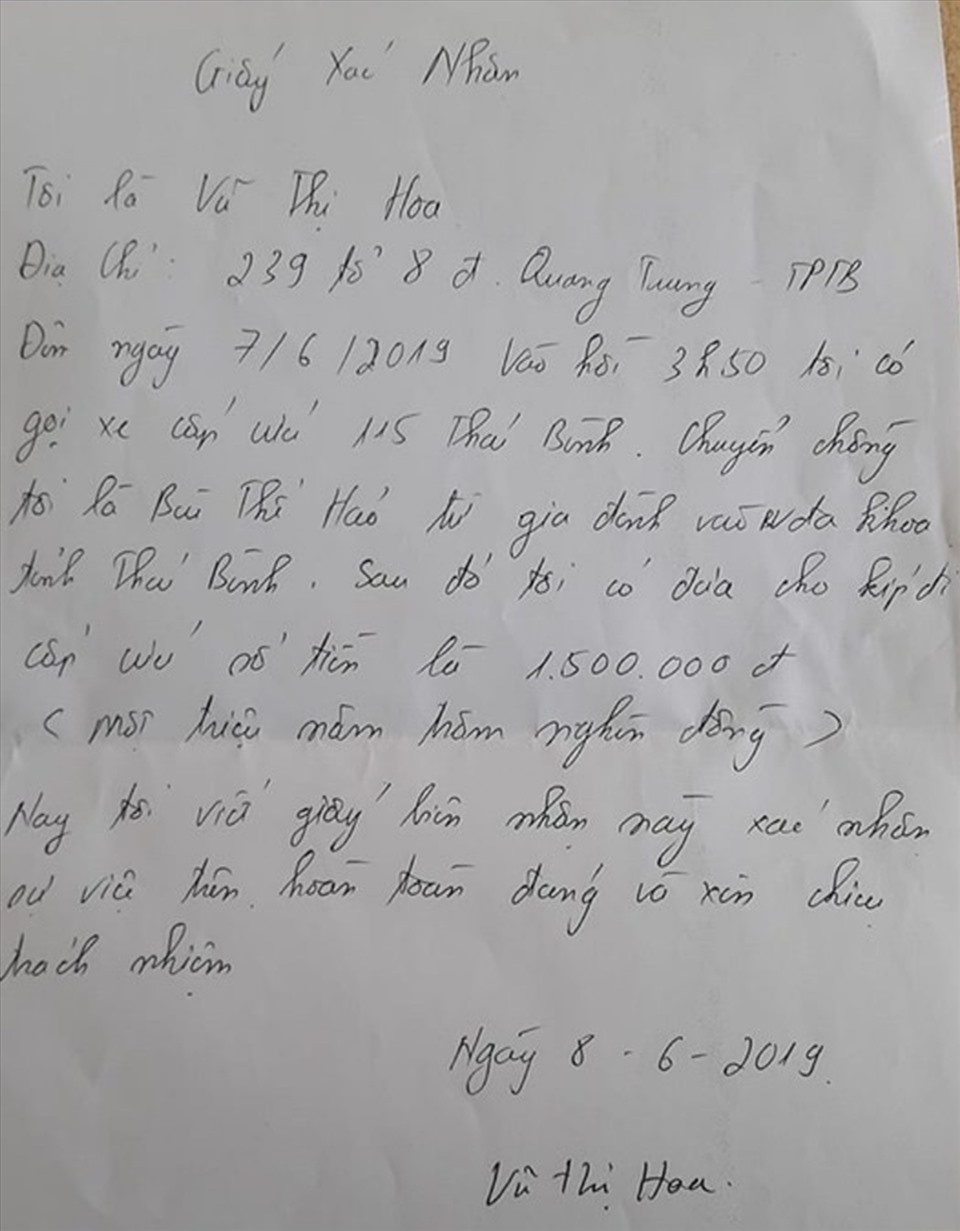 Giấy Xác Nhân
Tôi là Vũ Thị Hoa
Địa Chỉ: 239 tổ 8 đ. Quang Trung - TPTB
Đên ngày 7/6/2019 Vào hồi 3h50 tôi có
gọi xe cấp cứu 115 Thái Bình. Chuyển chồng
tôi là Bùi Thế Hảo từ gia đình vào BV đa khoa
tỉnh Thái Bình. Sau đó tôi có đưa cho kíp đi
cấp cứu số tiền là 1.500.000 đ
( một triệu năm trăm nghìn đồng )
Nay tôi viết giấy biên nhận này xác nhân
sự việc trên hoàn toàn đúng và xin chịu
trách nhiệm
Ngày 8 - 6 - 2019.
Vũ Thị Hoa.